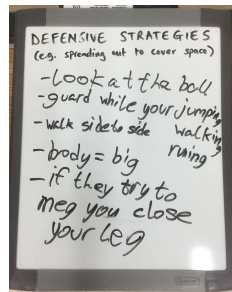 DEFENSIVE STRATEGIES
(e.g. spreading out to cover space)
- Look at the ball
- guard while your jumping
walking
runing
- walk side to side
- body = big
- if they try to
meg you close
your leg